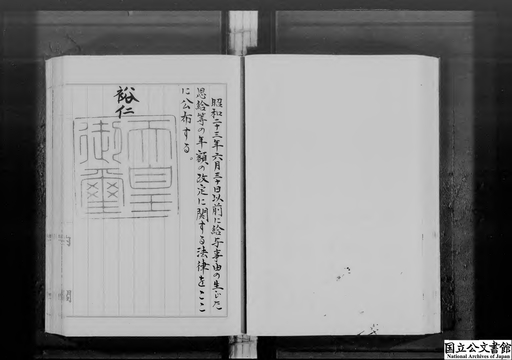 昭和二十三年六月三十日以前に給与事由の生じた
恩給等の年額の改定に関する法律をここ
に公布する。
裕仁
天皇
御璽
国立公文書館
National Archives of Japan